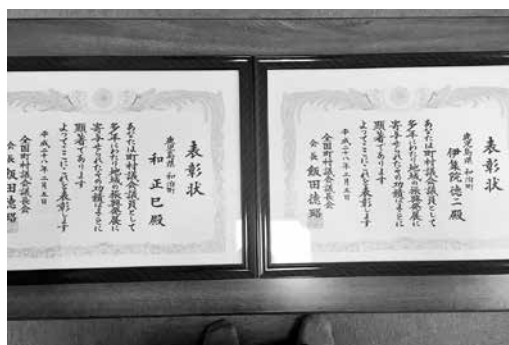 表彰状
鹿児島県 和泊町
伊集院徳二殿
あなたは町村議会議員として
多年にわたり地域の振興発展に
寄与せられたその功績はまことに
顕著であります
よってここにこれを表彰します
平成二十八年二月五日
全国町村議会議長会
会長 飯田徳昭
表彰状
鹿児島県 和泊町
和 正巳殿
あなたは町村議会議員として
多年にわたり地域の振興発展に
寄与せられたその功績はまことに
顕著であります
よってここにこれを表彰します
平成二十八年二月五日
全国町村議会議長会
会長 飯田徳昭